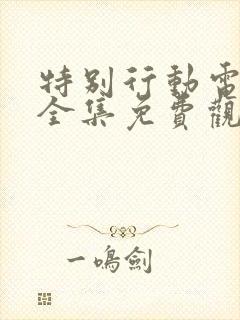 特別行動電
全集免費觀
一鳴劍